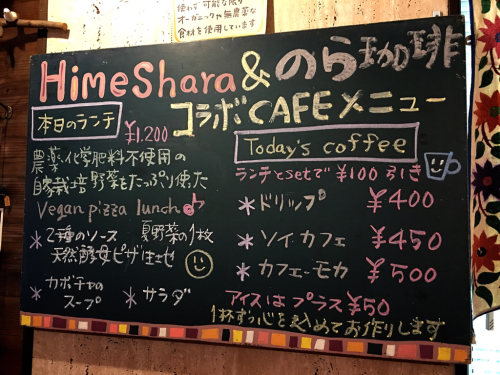 使わず可能な限り
オーガニックや無農薬な
食材を使用しています
HimeShara&のら珈琲
コラボCAFEメニュー
本日のランチ
¥1.200
農薬、化学肥料不使用の
自家栽培野菜をたっぷり使った
Vegan pizza lunch
*2種のソース 夏野菜の1枚
天然酵母ピザ生地
*カボチャの
スープ
*サラダ
Today's coffee
ランチとsetで ¥100引き
*ドリップ ¥400
*ソイカフェ ¥450
*カフェ・モカ ¥500
アイスは プラス ¥50
1杯ずつ心を込めてお作りします